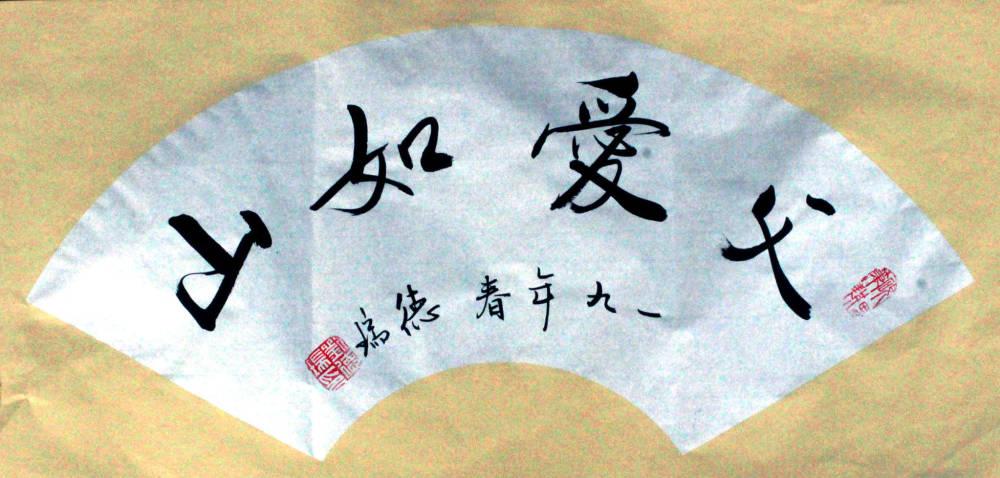 父愛如山
一九年春 德